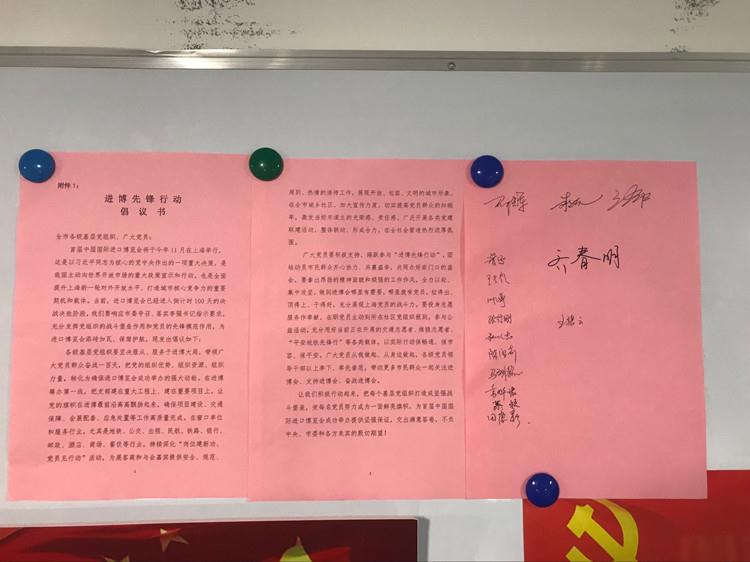 附件1：
进博先锋行动
倡议书
全市各级基层党组织、广大党员：
首届中国国际进口博览会将于今年11月在上海举行，
这是以习近平同志为核心的党中央作出的一项重大决策，是
我国主动向世界开放市场的重大政策宣示和行动，也是全面
提升上海新一轮对外开放水平、打造城市核心竞争力的重要
契机和载体。当前，进口博览会已经进入倒计时100天的决
战决胜阶段，我们要响应市委号召、落实李强书记指示要求，
充分发挥党组织的战斗堡垒作用和党员的先锋模范作用，为
进口博览会添砖加瓦、保驾护航，现发出倡议如下：
各级基层党组织要坚决服从、服务于进博大局，带领广
大党员群众奋战一百天，把党的组织优势、组织资源、组织
力量，转化为确保进口博览会成功举办的强大动能，在进博
筹办第一线，把支部建在重大工程上、建在重要项目上，让
党的旗帜在进博最前沿高高飘扬起来，确保项目建设、交通
保障、会展配套、应急处置等工作高质量完成。在窗口单位
和服务行业，尤其是地铁、公交、出租、民航、铁路、银行、
邮政、酒店、商场、餐饮等行业，持续深化“岗位建新功、
党员见行动”活动，为展客商和与会嘉宾提供安全、规范、
周到、热情的接待工作，展现开放、包容、文明的城市形象。
在全市城乡社区，加大宣传力度，切实提高党员群众的知晓
率，激发当好东道主的光荣感、责任感，广泛开展各类党建
联建活动，整体联动、形成合力，在全社会营造热烈浓厚氛
围。
广大党员要积极支持、踊跃参与“进博先锋行动”，团
结动员市民群众齐心协力、共襄盛举，共同办好家门口的盛
会。要拿出昂扬的精神面貌和顽强的工作作风，全力以赴、
集中攻坚，做到进博会哪里有需要，哪里就有党员，拉得出、
顶得上、干得好，充分展现上海党员的战斗力。要投身志愿
服务作奉献，在职党员主动到所在社区党组织报到，参与公
益活动，充分用好当前正在开展的交通志愿者、缤骁志愿者、
“平安地铁先锋行”等各类载体，以实际行动保畅通、保市
容、保平安。广大党员从我做起、从身边做起，各级党员领
导干部以上率下、率先垂范，带动更多市民群众一起关注进
博会、支持进博会、奋战进博会。
让我们积极行动起来，把每个基层党组织打造成坚强战
斗堡垒，使每名党员努力成为一面鲜亮旗帜，为首届中国国
际进口博览会成功举办提供坚强保证，交出满意答卷，不负
中央、市委和各方来宾的殷切期望！
1
2
齐春明